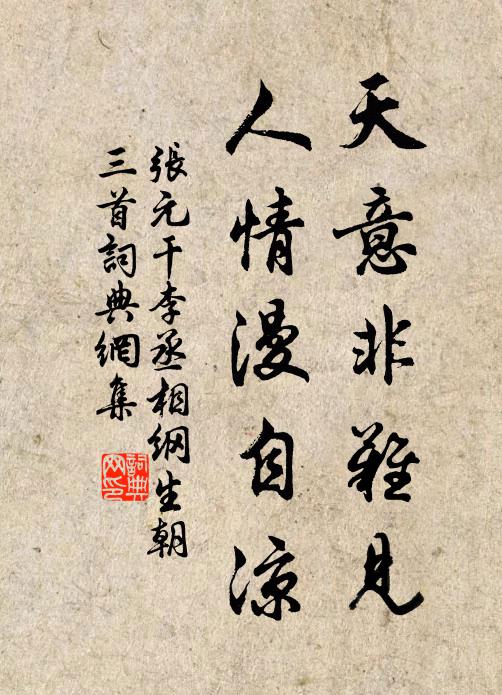 天意非難見
人情漫自凉
張元干李丞相纲生朝
三首詞典網集
詞典
网印